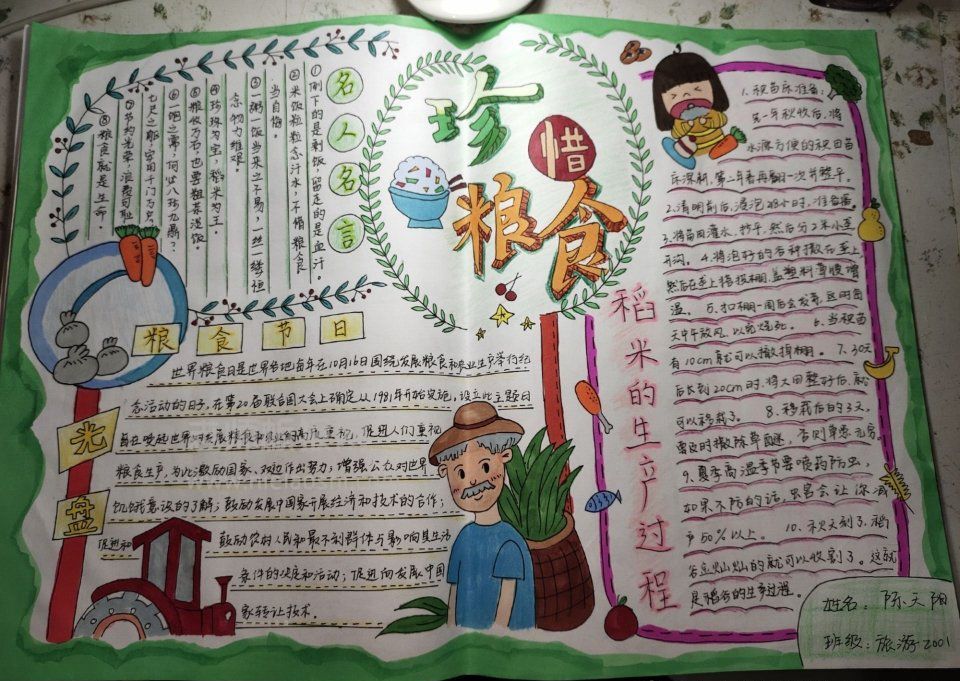 珍惜粮食
名人名言
①倒下的是剩饭,留走的是血汗。
②米饭粒粒念汗水,不惜粮食
当自悔。
③一粥一饭当来之不易,一丝一缕恒
念物力维艰。
④珍珠为宝,稻米为王。
⑤粮收万石,也要粗茶淡饭。
⑥一咽之常,何必八珍九鼎?
七尺之躯,
⑦节约光荣,浪费可耻
⑧粮食就是生命。
粮食节日
世界粮食日是世界各地每年在10月16日围绕发展粮食和农业生产举行纪
念活动的日子,在第20届联合国大会上确定从1981年开始实施。设立此主题日
旨在唤起世界对发展粮食和农业的高度重视,促进人们重视
粮食生产,为此激励国家、双边作出努力;增强公众对世界
饥饿意识的了解;鼓励发展中国家开展经济和技术的合作;
促进和 鼓励农村人民和最不利群体参与影响其生活
条件的决定和活动;促进向发展中国
家转让技术。
光盘
稻米的生产过程
1.秧苗床准备:
头一年秋收后,将
水源方便的秧田苗
床深耕,第二年春再翻一次并整平。
2.清明前后,浸泡48小时,准备播。
3.将苗田灌水、抄平,然后分2米小垄
开沟。 4.将泡好的谷种撒后垄上,
然后在垄上搭拱棚,盖塑料膏慢增
温。 5.扣棚一周后会发芽,这时每
天中午放风,以免烧死。 6.当秧苗
有10cm就可以撤掉棚。 7.30天
后长到20cm时,将大田整好后,就
可以移栽了。 8.移栽后的3天,
需及时撒除草醚,否则草患无穷。
9.夏季高温季节要喷药防虫,
如果不防的话,虫害会让你减
产50%以上。 10.秋天到了,稻
谷金灿灿的就可以收割了。这就
是稻谷的生产过程。
姓名:陈天阳
班级:旅游2001